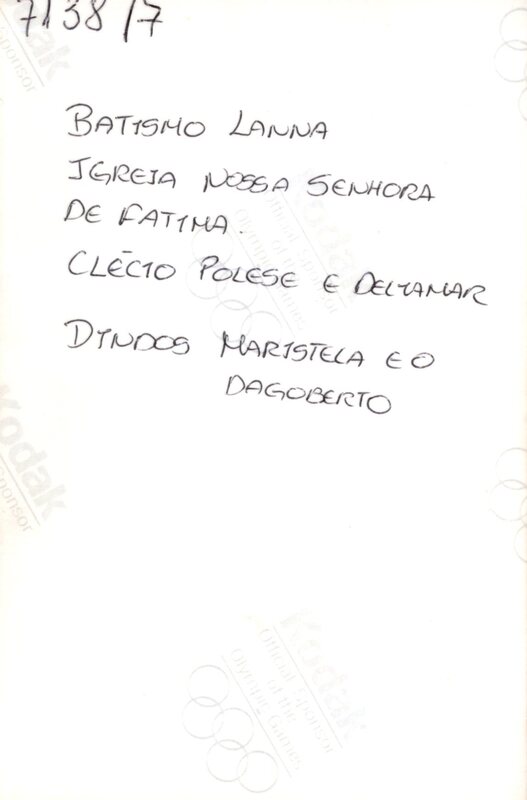 7138/7
Kodak
Sponsor
BATISMO LANNA
IGREJA NOSSA SENHORA
DE FATIMA.
CLÉCIO POLESE E DELIAMAR
DINDOS MARISTELA E O
DAGOBERTO
Kodak
Official Sponsor
of the
Olympic Games
Kodak
Sponsor
Kodak
Official Sponsor
of the
Olympic Games